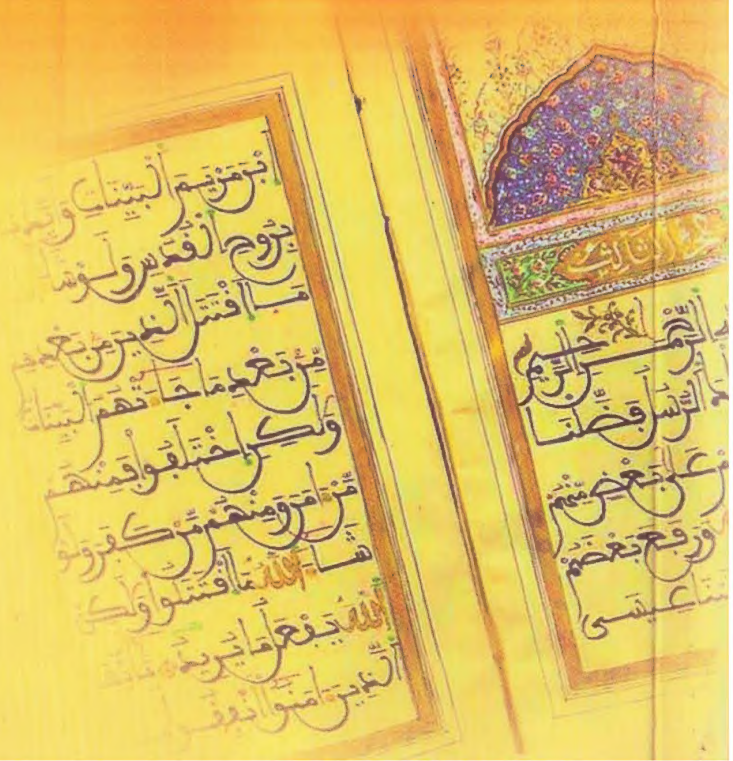 الثالث
الرحمن الرحيم
الرسل فضلنا
على بعض منهم
ورفع بعضهم
عيسى
ابْن مَرْيَمَ الْبَيِّنَاتِ
بِرُوحِ الْقُدُسِ وَلَوْ شَا
مَا اقْتَتَلَ الَّذِينَ مِنْ بَعْدِهِم
مِّنْ بَعْدِ مَا جَاءَتْهُمُ الْبَيِّنَاتُ
وَلَكِنِ اخْتَلَفُوا فَمِنْهُم
مَّنْ ءَامَنَ وَمِنْهُم مَّنْ كَفَرَ وَلَوْ
شَاءَ اللهُ مَا اقْتَتَلُوا وَلَكِنَّ
اللهَ يَفْعَلُ مَا يُرِيدُ
الَّذِينَ ءَامَنُوا أَنفِقُوا